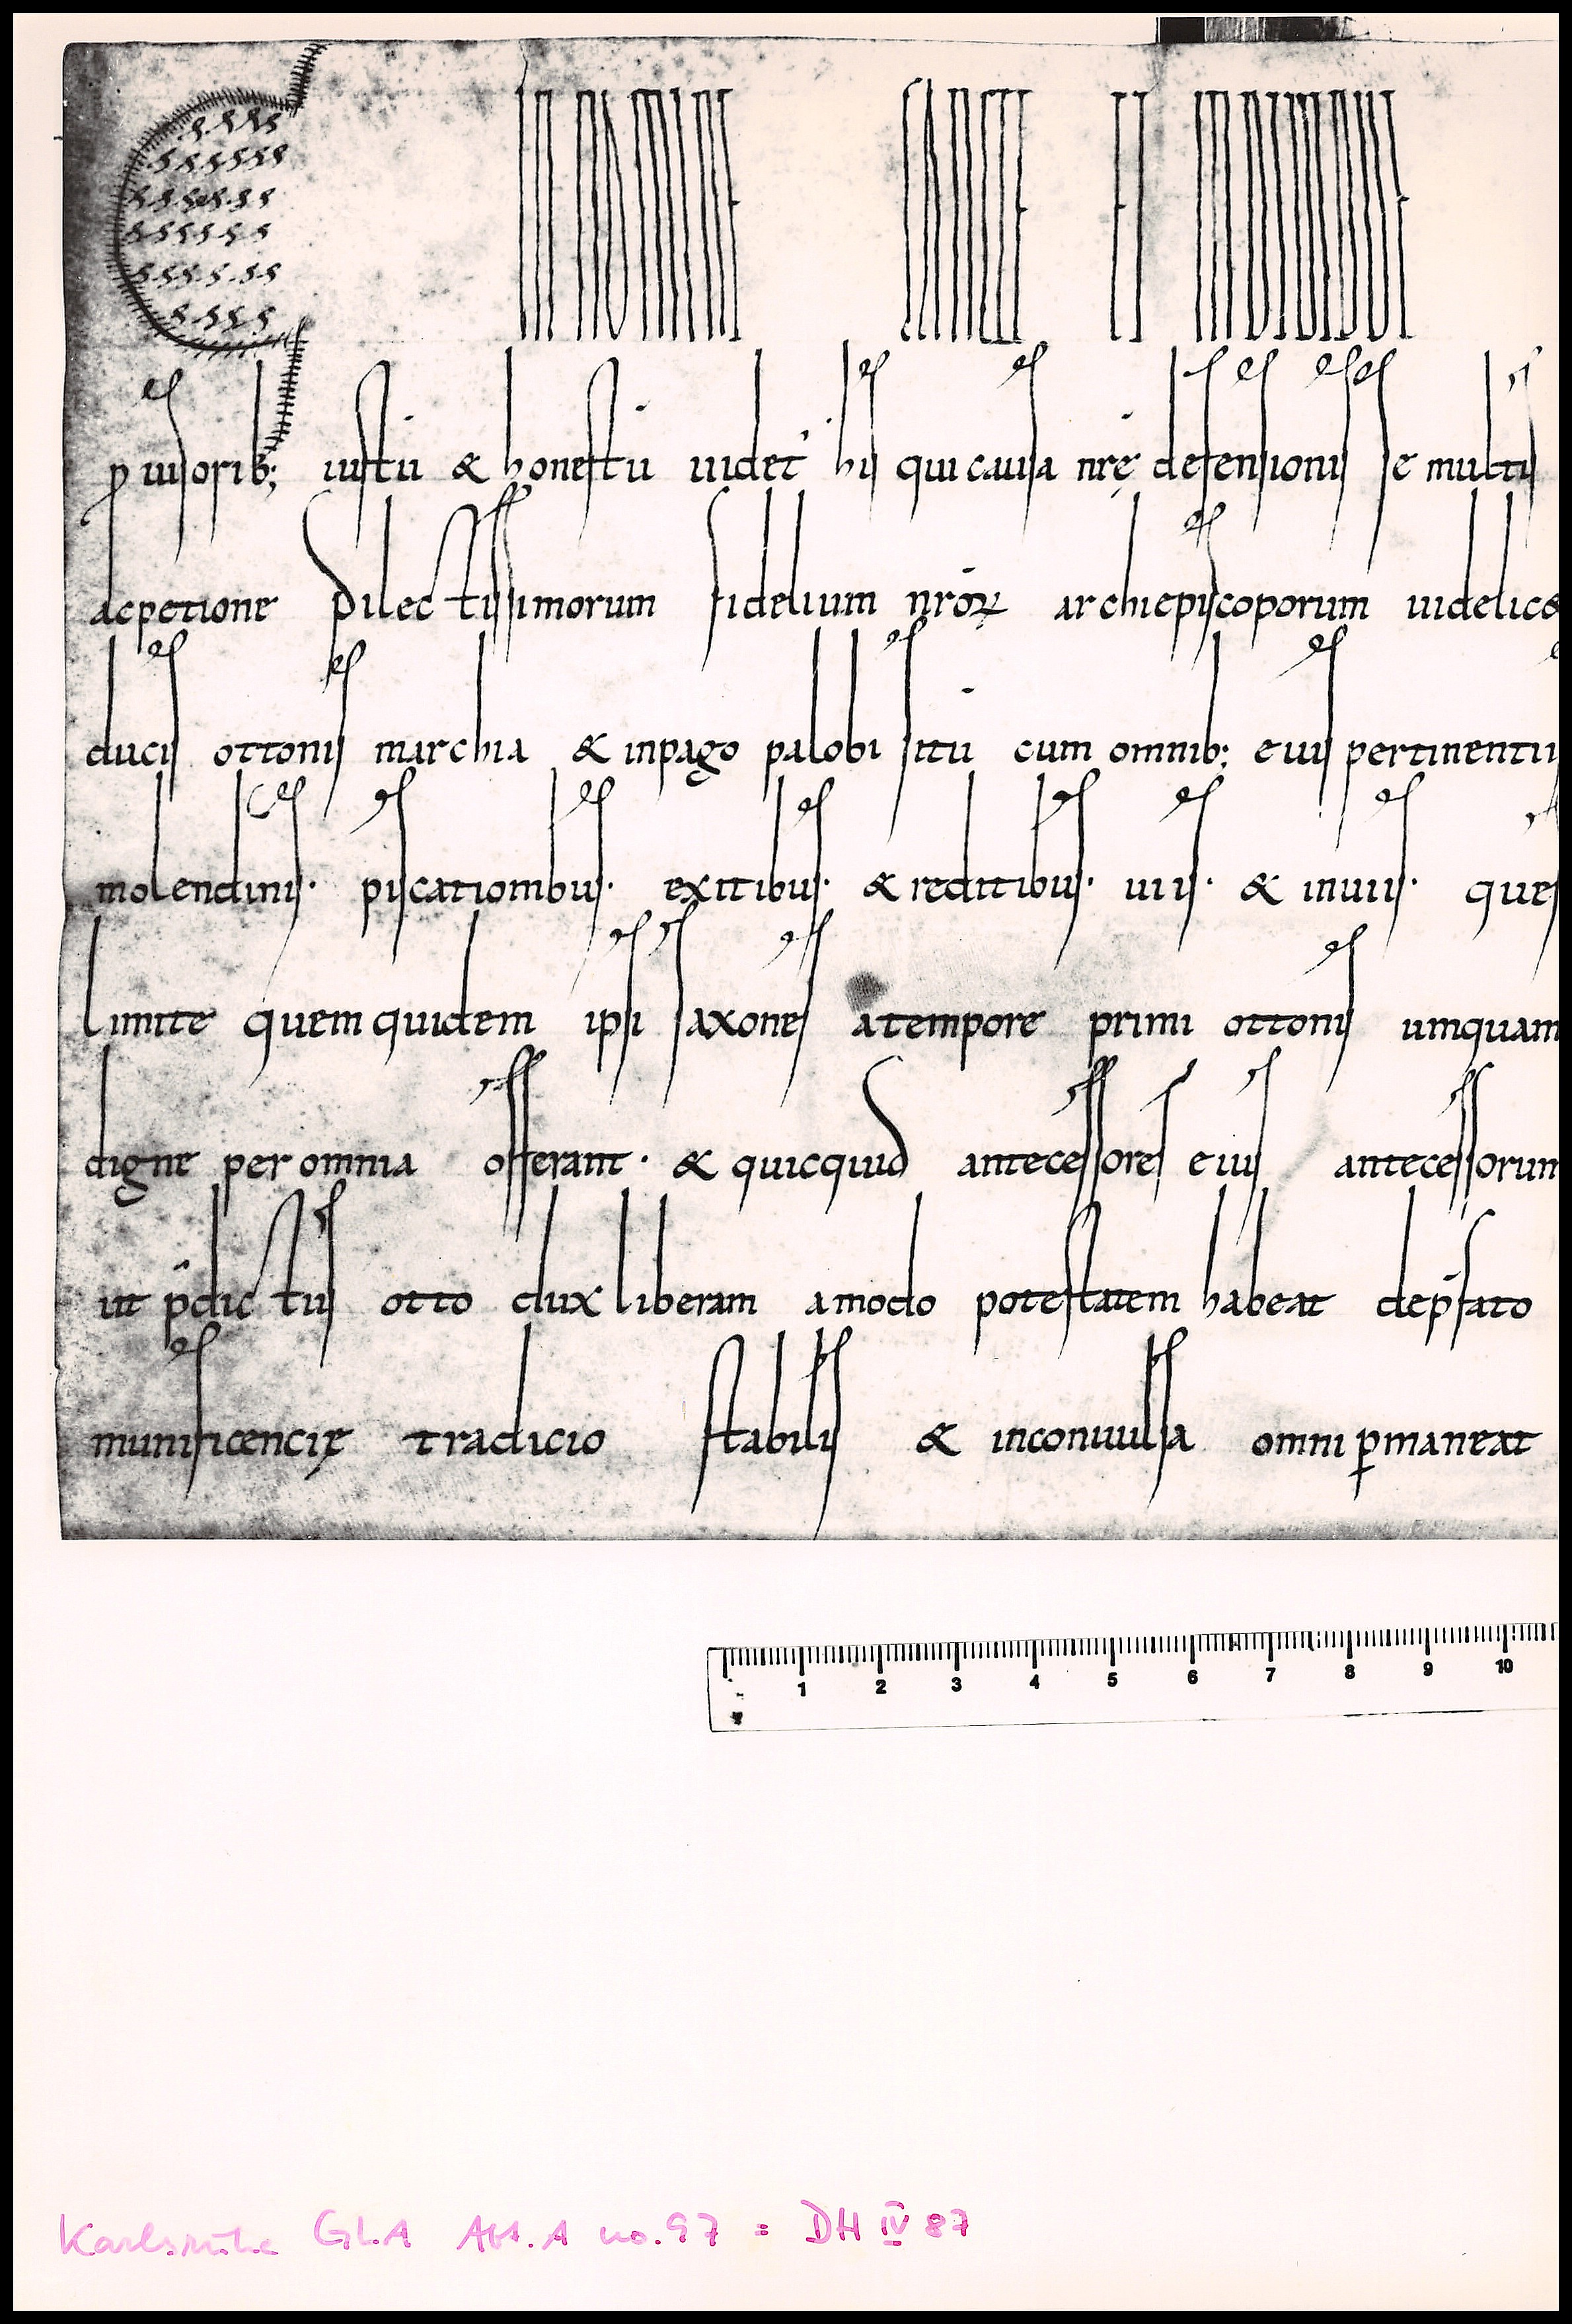 IN NOMINE SANCTE ET INDIVIDUE
ꝓuisorib; iustū & honestū uidet̄ his qui causa nr̄ę defensionis se multis
ac petione dilectissimorum fidelium nr̄oꝝ archiepiscoporum uidelic&
ducis ottonis marchia & in pago palobi sitū cum omnib; eius pertinentiis
molendinis· piscationibus· exitibus· & reditibus· uiis· & inuiis· ques
limite quem quidem ipsi saxones a tempore primi ottonis umquam
digne per omnia offerant· & quicquid antecessores eius antecessorum
ut p̄dictus otto dux liberam amodo potestatem habeat de p̄fato
munificencię tradicio stabilis & inconuulsa omni ꝑmaneat
1 2 3 4 5 6 7 8 9 10
Karlsruhe GLA Abt. A no. 97 = DH IV 87